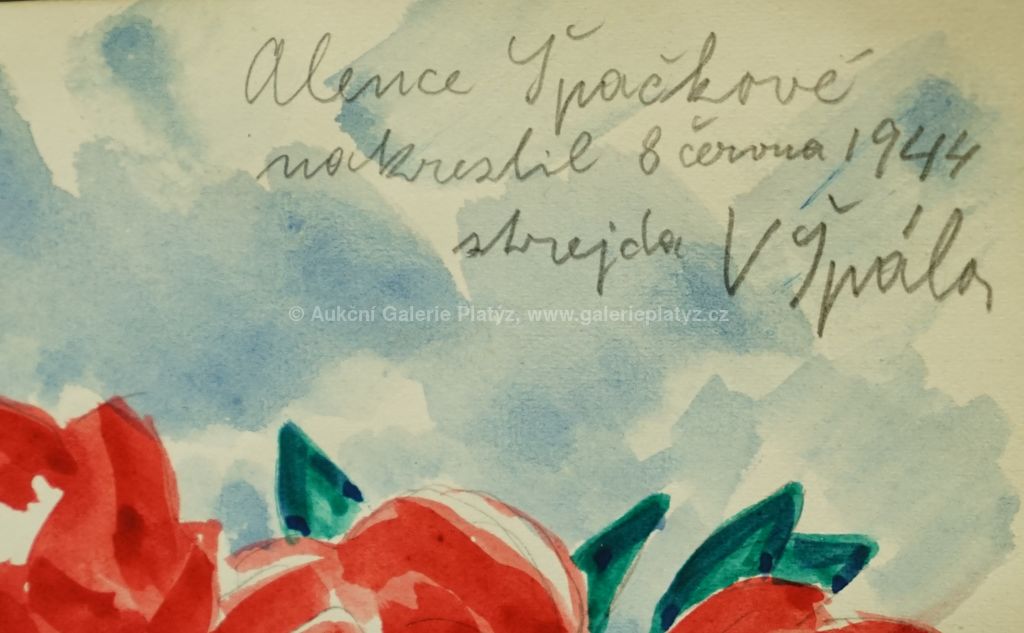 Alence Špačkové
nakreslil 8 června 1944
strejda V Špála
© Aukcní Galerie Platýz, www.galerieplatyz.cz